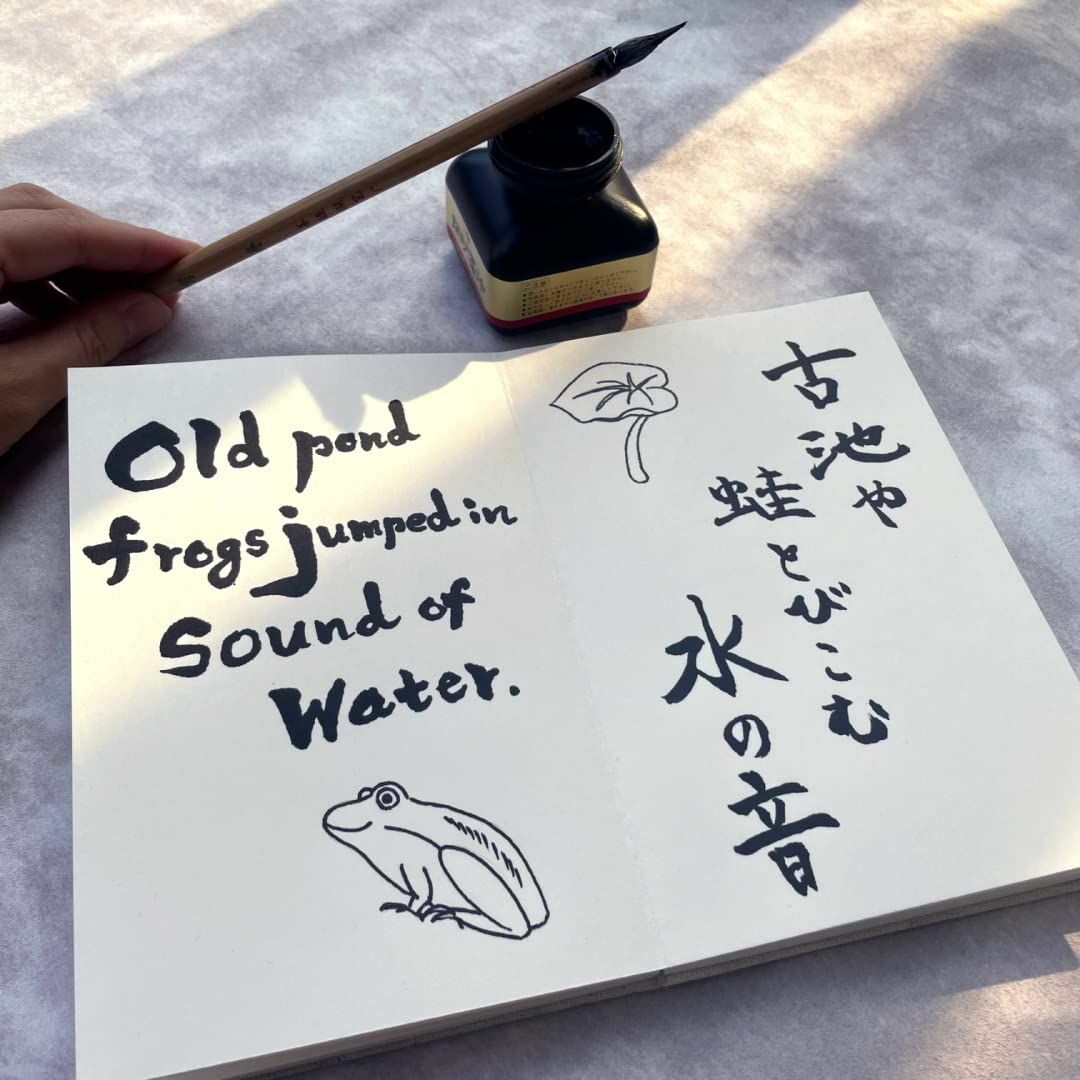 Old pond
frogs jumped in
Sound of
Water.
古池や
蛙とびこむ
水の音